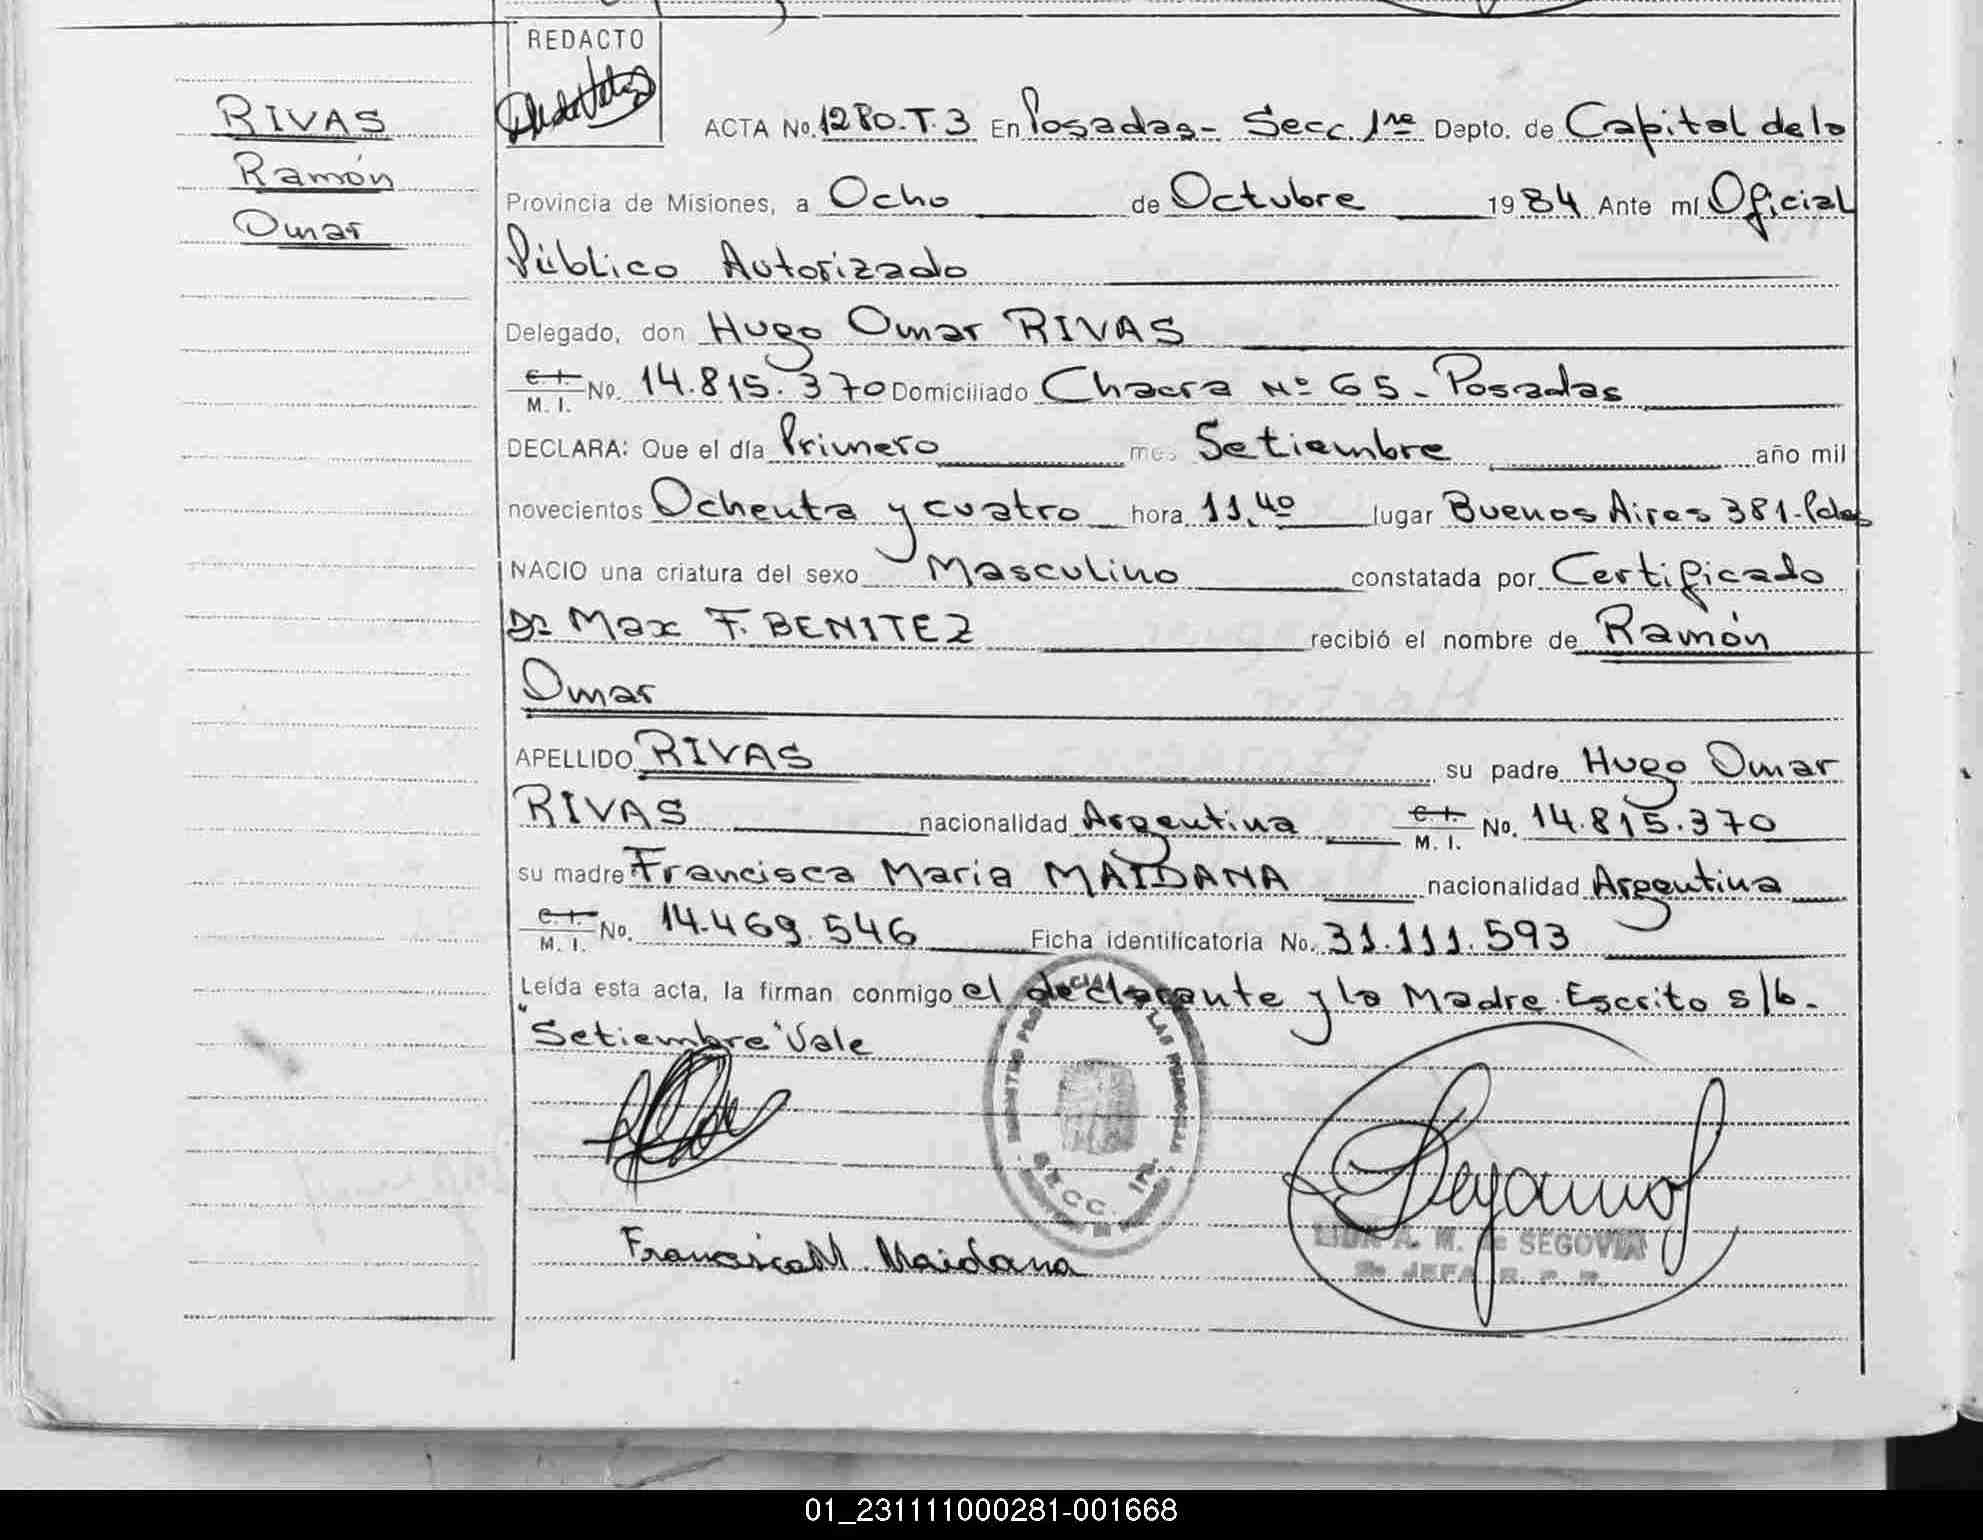 REDACTO
RIVAS
Ramón
Omar
ACTA No. 1280.T.3 En Posadas- Secc. 1ra Depto. de Capital de la
Provincia de Misiones, a Ocho de Octubre 1984 Ante mí Oficial
Público Autorizado
Delegado, don Hugo Omar RIVAS
C.I. M.I. No. 14.815.370 Domiciliado Chacra Nº 65 - Posadas
DECLARA: Que el día Primero mes Setiembre año mil
novecientos Ochenta y cuatro hora 11,40 lugar Buenos Aires 381-Pdas
NACIO una criatura del sexo Masculino constatada por Certificado
Dr Max F. BENITEZ recibió el nombre de Ramón
Omar
APELLIDO RIVAS su padre Hugo Omar
RIVAS nacionalidad Argentina C.I. M.I. No. 14.815.370
su madre Francisca Maria MAIDANA nacionalidad Argentina
C.I. M.I. No. 14.469.546 Ficha identificatoria No. 31.111.593
Leída esta acta, la firman conmigo el declarante y la Madre. Escrito s/b.
"Setiembre" Vale
SECC. 1RA.
Francisca M. Maidana
A. M. de SEGOVIA
01_231111000281-001668